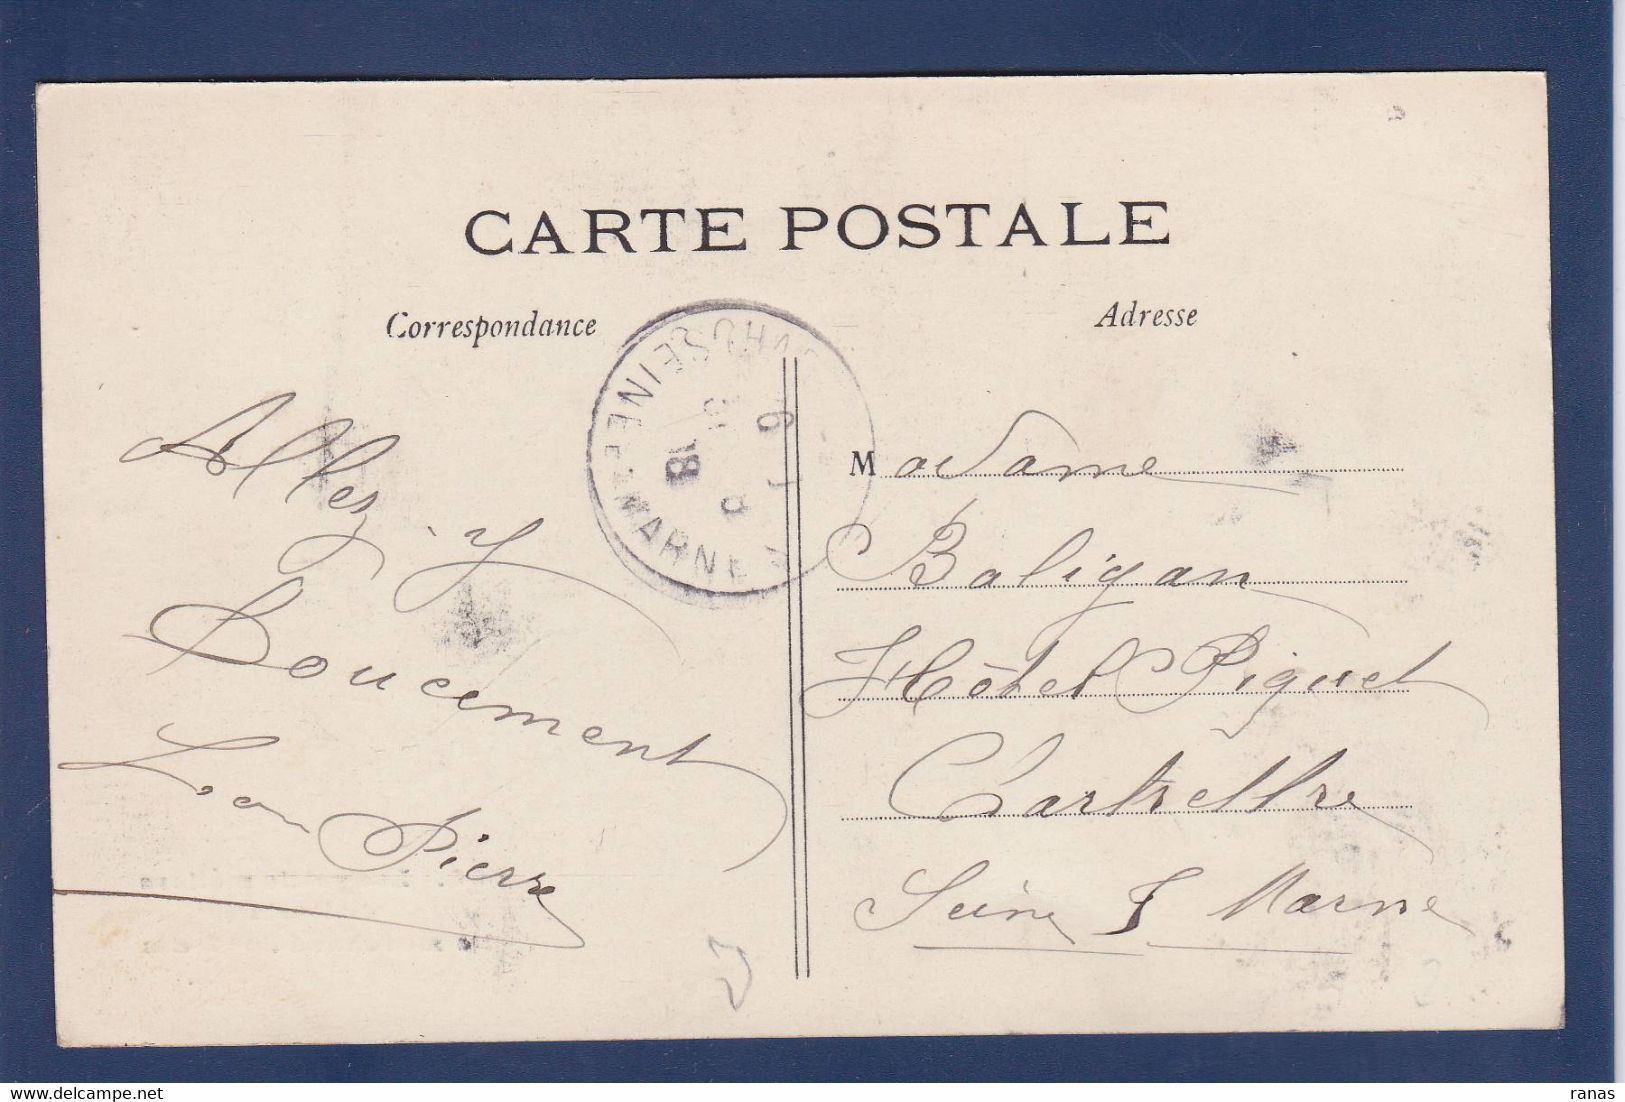 CARTE POSTALE
Correspondance
Adresse
SEINE-ET-MARNE
6
18
Allez-y
Doucement
Pierre
Madame
Baligan
Hôtel Piguet
Chartrettre
Seine & Marne
ranas